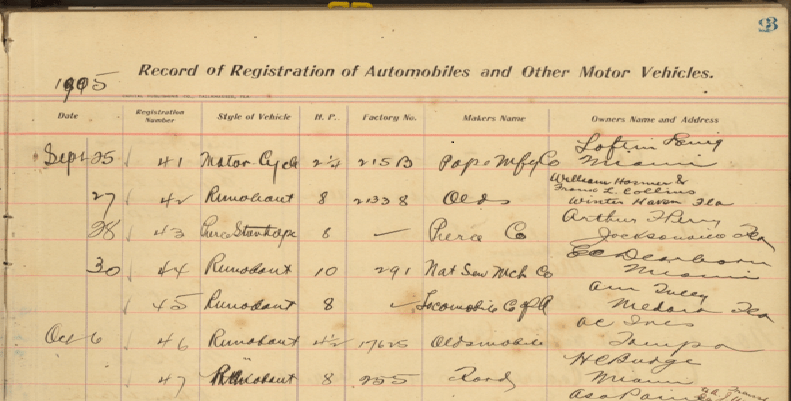 93
1905 Record of Registration of Automobiles and Other Motor Vehicles.
Date Registration Number Style of Vehicle H. P. Factory No. Makers Name Owners Name and Address
Sept 25 41 Motor Cycle 2½ 215B Pope Mfg Co Loftin
Miami
27 42 Runobout 8 2338 Olds William Hormer &
L. Collins
Winter Haven Fla
28 43 Stanhope 8 — Pierce Co Arthur
Jacksonville Fla
30 44 Runobout 10 291 Nat Sew Mch Co Dearborn
Miami
45 Runobout 8 Locomobile Co of A
Medora Fla
Oct 6 46 Runobout 4½ 17625 Oldsmobile
Tampa
47 Runobout 8 255 H C Budge
Miami